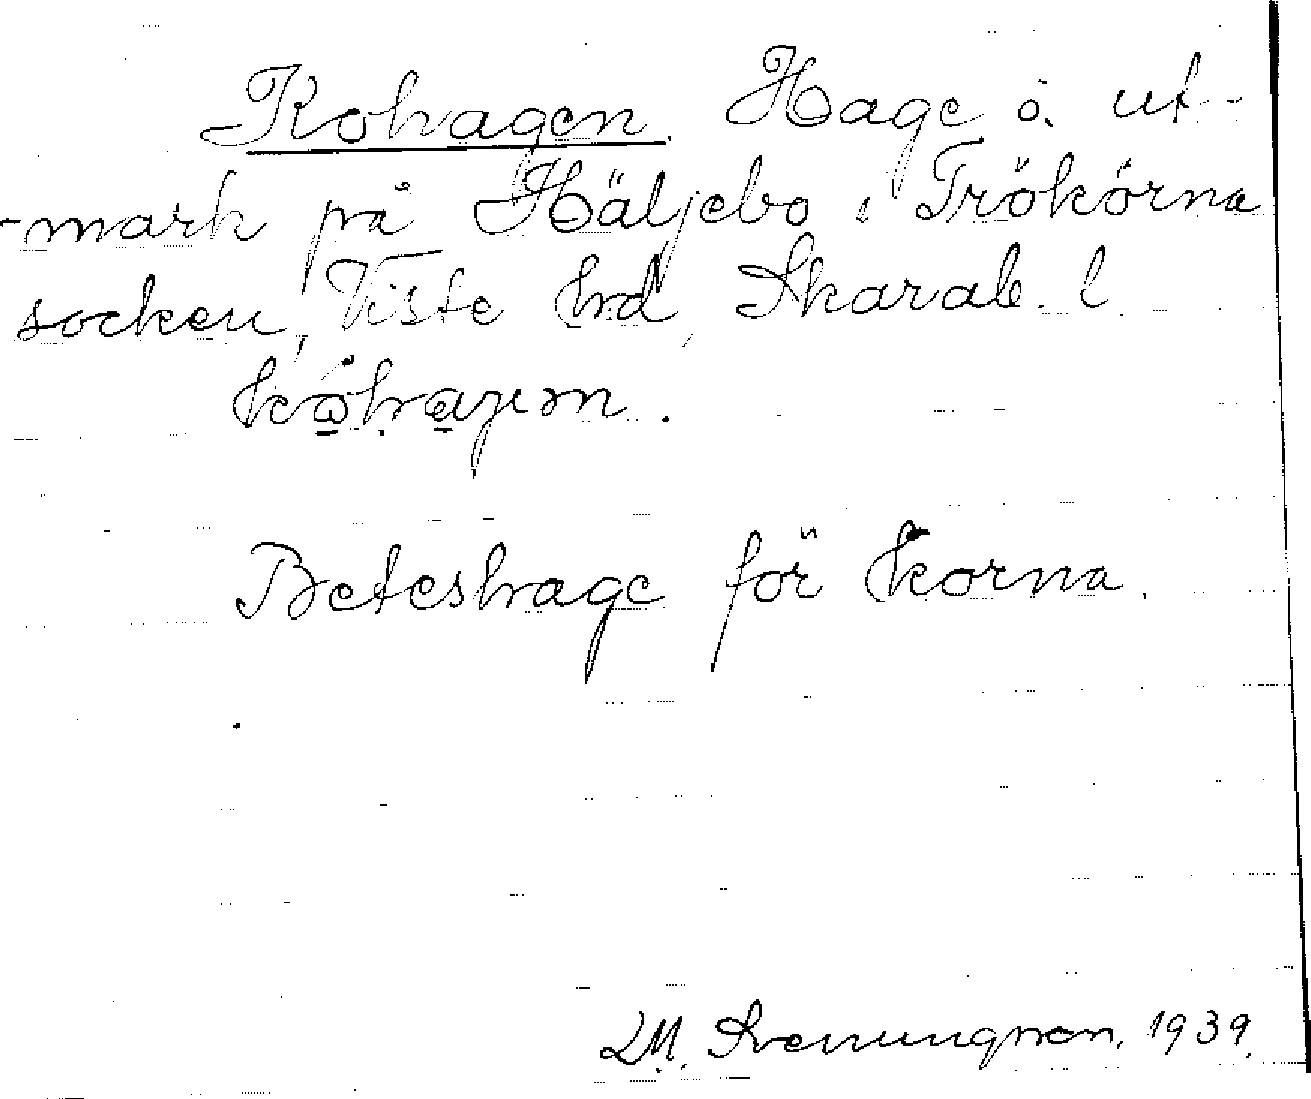 Kohagen. Hage å ut-
-mark på Häljebo i Trökörna
socken, Viste hd, Skarab. l.
Beteshage för korna.
D.M. Svenungsson. 1939.